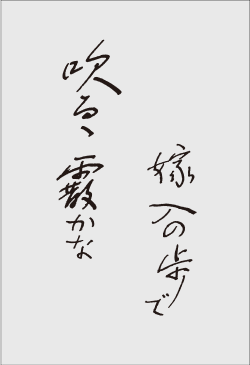 嫁入の歩で
吹るゝ霰かな